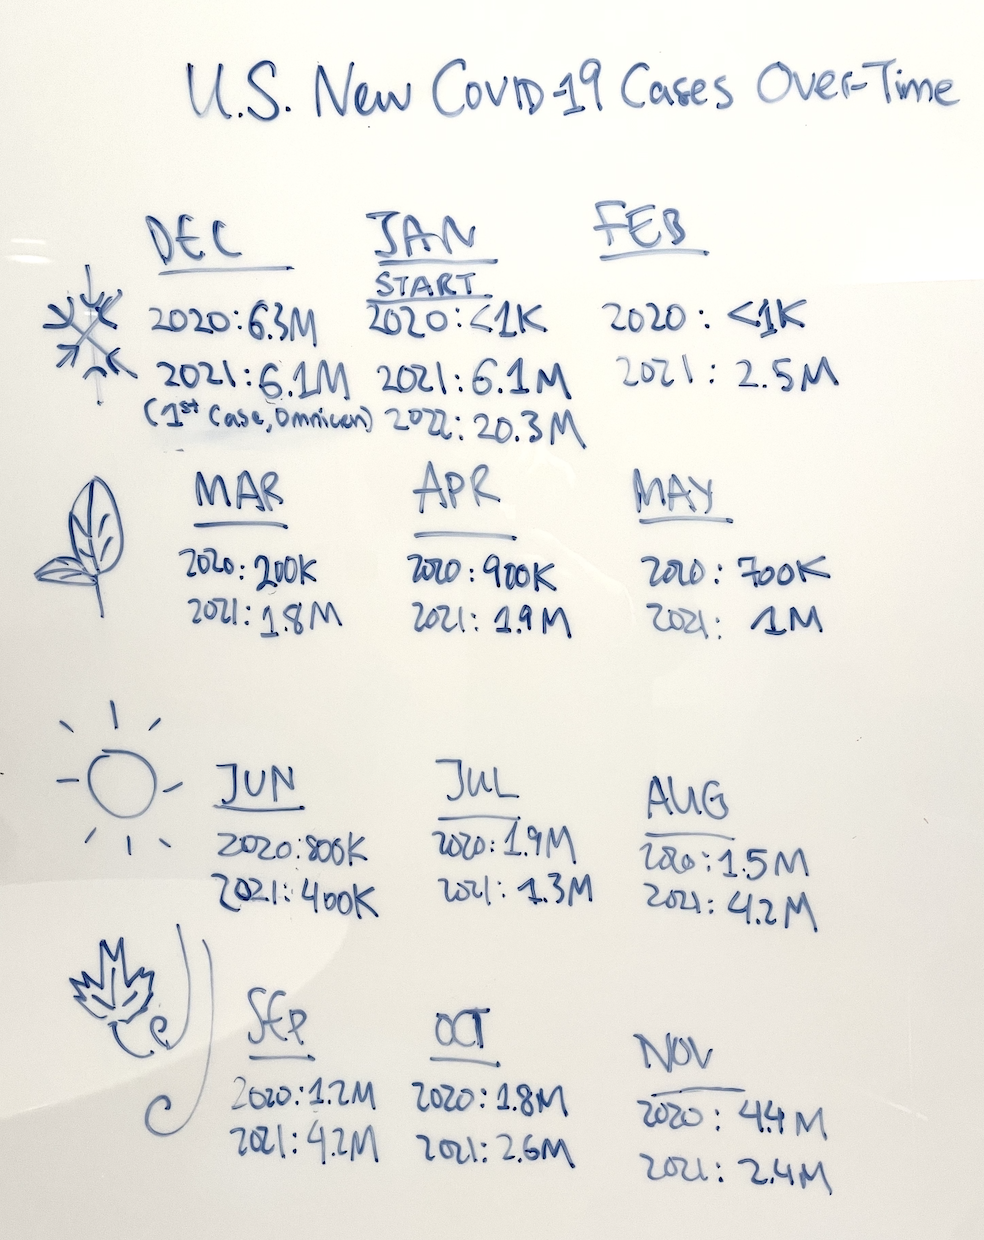 U.S. New COVID-19 Cases Over-Time
DEC
2020: 6.3M
2021: 6.1M
(1st Case, Omnicen)
JAN
START
2020: <1K
2021: 6.1M
2022: 20.3M
FEB
2020: <1K
2021: 2.5M
MAR
2020: 200K
2021: 1.8M
APR
2020: 900K
2021: 1.9M
MAY
2020: 700K
2021: 1M
JUN
2020: 800K
2021: 400K
JUL
2020: 1.9M
2021: 1.3M
AUG
2020: 1.5M
2021: 4.2M
SEP
2020: 1.2M
2021: 4.2M
OCT
2020: 1.8M
2021: 2.6M
NOV
2020: 4.4M
2021: 2.4M